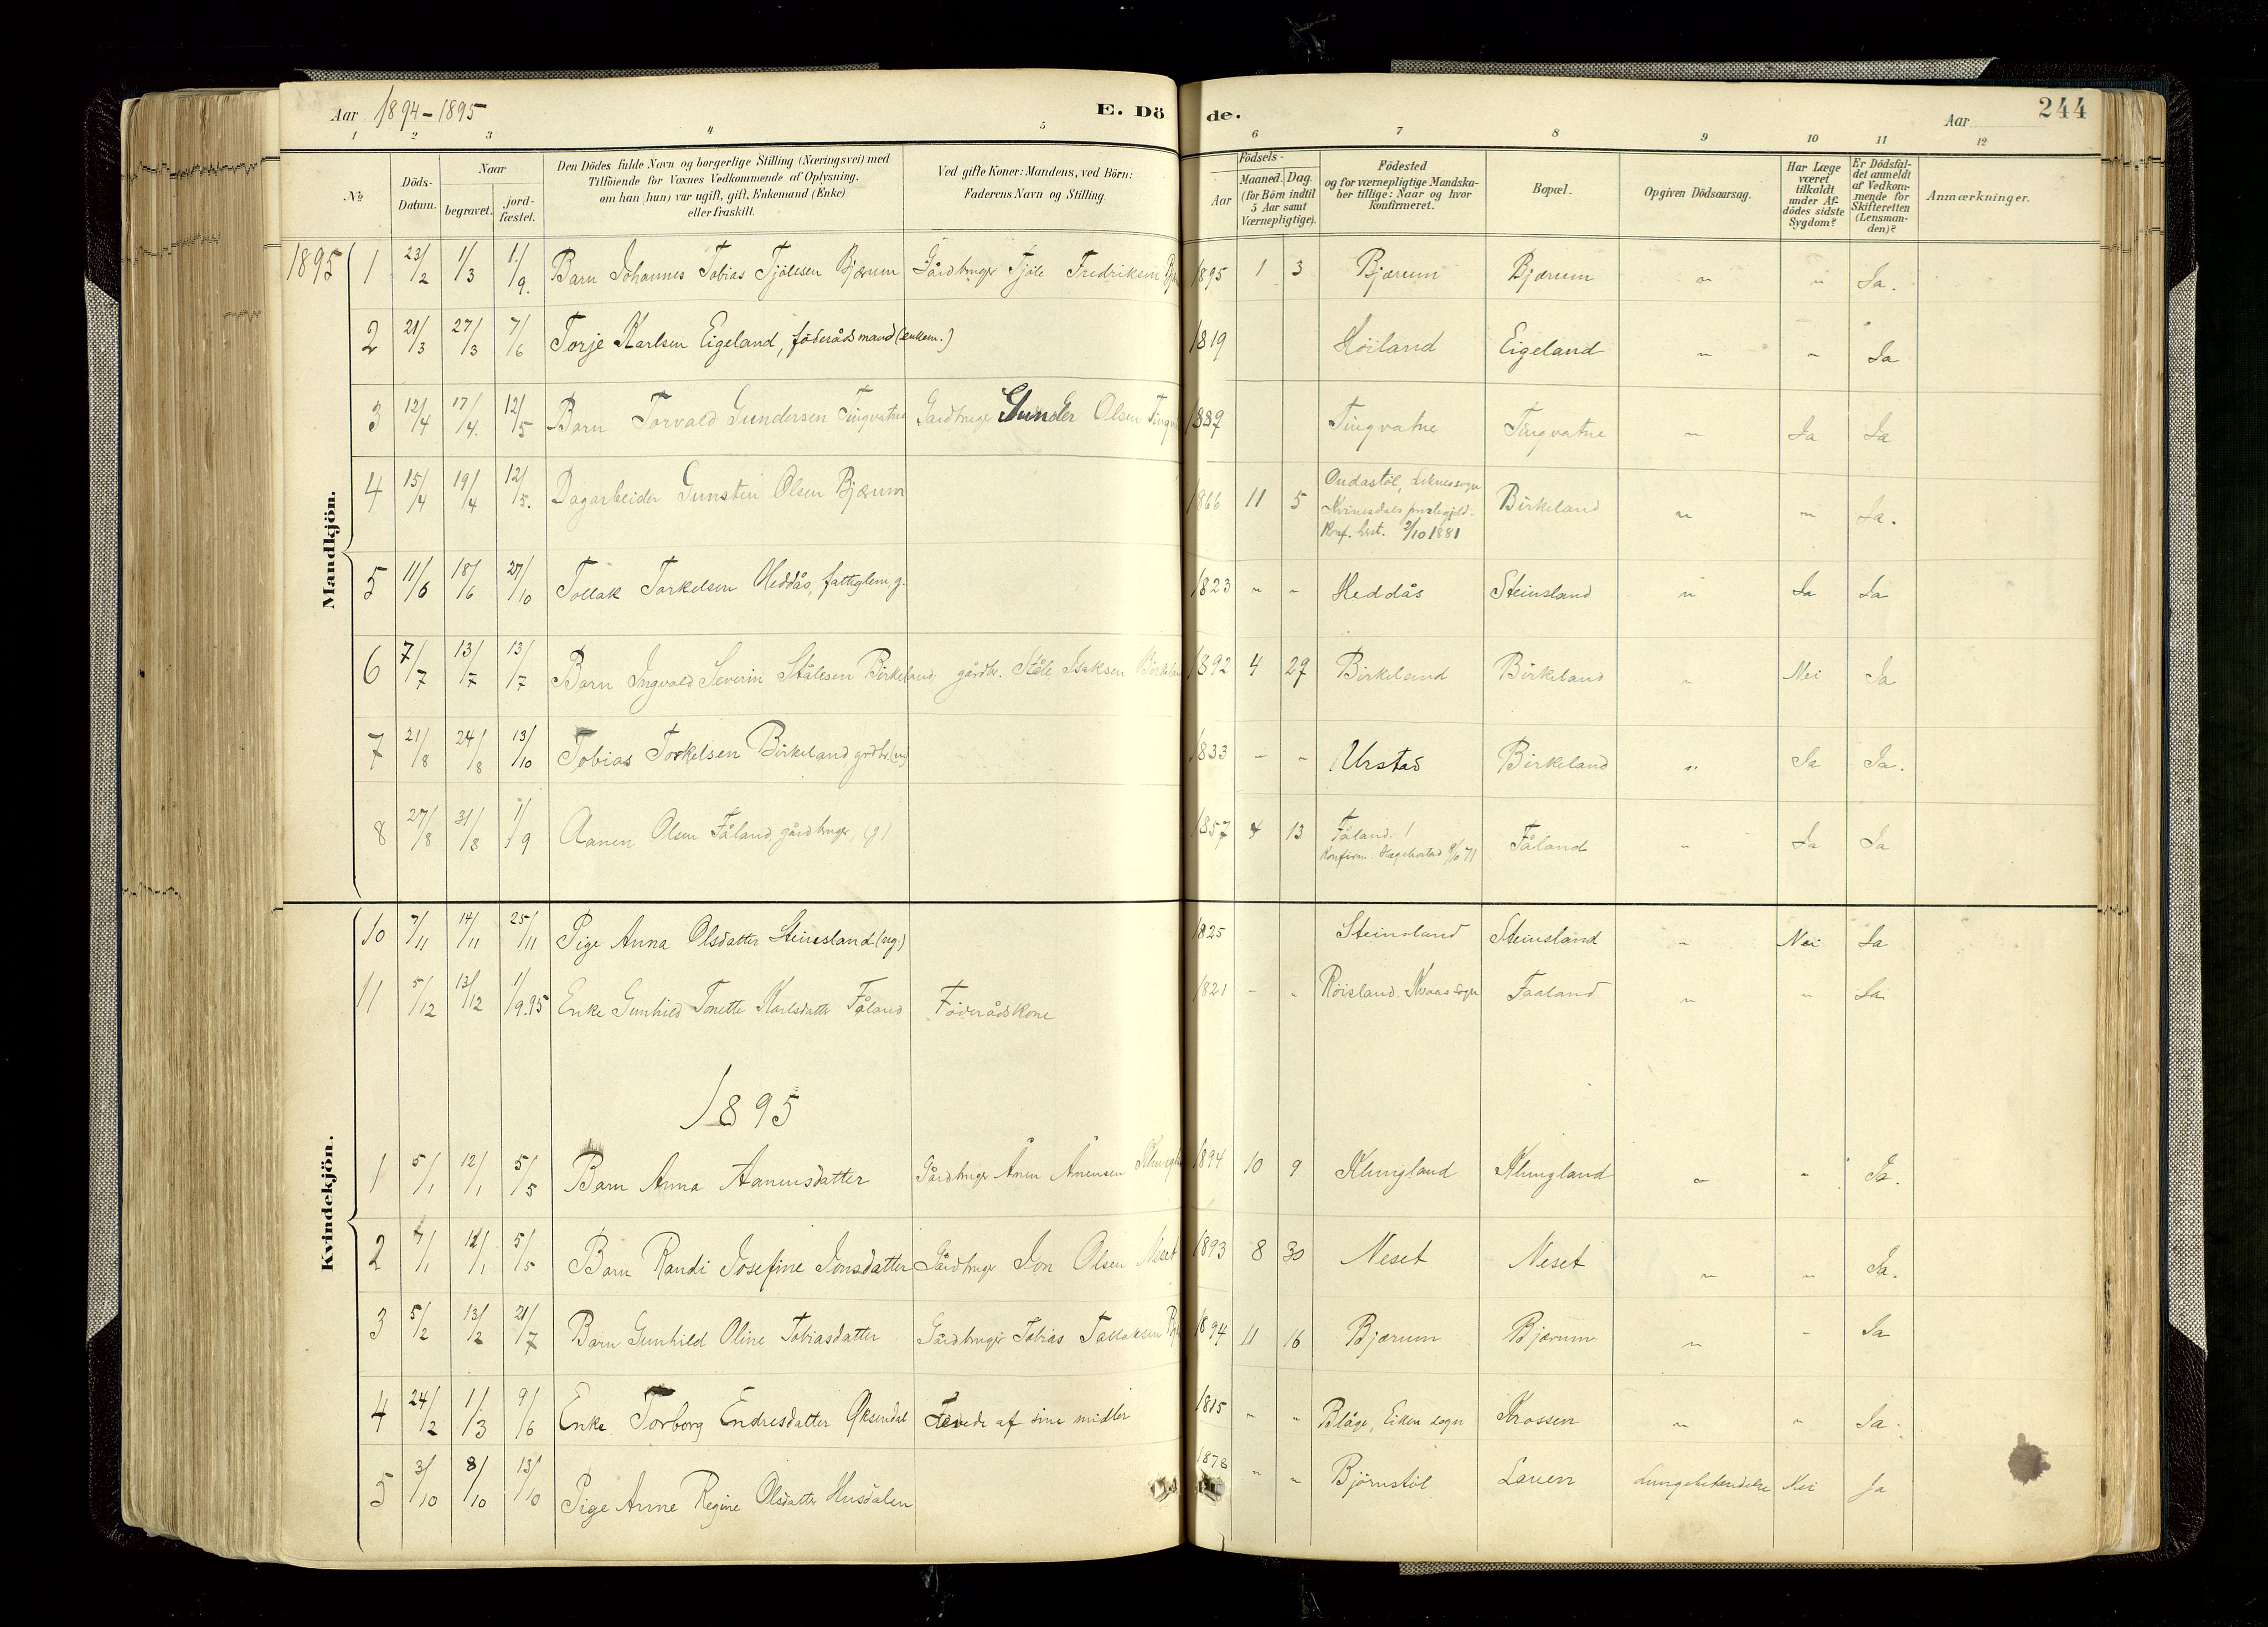 Aar 1894-1895
E. Dö
de.
Aar
244
1 2 3 4 5 6 7 8 9 10 11 12
No
Döds-Datum.
Naar
begravet.
jord-fæstet.
Den Dödes fulde Navn og borgerlige Stilling (Næringsvei) med
Tilföiende for Voxnes Vedkommende af Oplysning,
om han (hun) var ugift, gift, Enkemand (Enke)
eller fraskilt.
Ved gifte Koner: Mandens, ved Börn:
Faderens Navn og Stilling.
Födsels-
Aar
Maaned.
Dag.
(for Börn indtil
5 Aar samt
Værnepligtige).
Födested
og for værnepligtige Mandska-
ber tillige: Naar og hvor
konfirmeret.
Bopæl.
Opgiven Dödsaarsag.
Har Læge
været
tilkaldt
under Af-
dödes sidste
Sygdom?
Er Dödsfal-
det anmeldt
af Vedkom-
mende for
Skifteretten
(Lensman-
den)?
Anmærkninger.
Mandkjön.
1895 1 23/2 1/3 1/9. Barn Johannes Tobias Tjölesen Bjærum Gårdbruger Tjöle Fredriksen 1895 1 3 Bjærum Bjærum " " Ja.
2 21/3 27/3 7/6 Torje Karlsen Eigeland, föderådsmand (enkem.) 1819 Höiland Eigeland " " Ja
3 12/4 17/4. 12/5 Barn Torvald Gundersen Tingvatne Gardbruger Gunder Olsen 1889 Tingvatne Tingvatne " Ja Ja
4 15/4 19/4 12/5. Dagarbeider Gunsten Olsen Bjærum 1866 11 5 Oudastöl, Liknes sogn
Kvinesdals præstegjeld.
Konf. 2/10 1881 Birkeland " " Ja.
5 11/6 18/6 27/10 Tollak Torkelsen Heddås, fattiglem, g. 1823 " " Heddås Steinsland " Ja Ja
6 7/7 13/7 13/7 Barn Ingvald Severin Stålesen Birkeland, gårdbr. Ståle Isaksen Birkeland 1892 4 29 Birkeland Birkeland " Nei Ja
7 21/8 24/8 13/10 Tobias Torkelsen Birkeland grdbr. 1833 - " Urstad Birkeland " Ja Ja.
8 27/8 31/8 1/9 Aanen Olsen Fåland, gårdbruger, (g) 1857 4 13 Fåland.
Konfirm. Hægebostad 8/10 71 Fåland " Ja Ja
Kvindekjön.
10 7/11 14/11 25/11 Pige Anna Olsdatter Steinsland (ug.) 1825 Steinsland Steinsland " Nei Ja
11 5/12 13/12 1/9.95 Enke Gunhild Tonette Karlsdatter Fåland Föderådskone 1821 - " Röisland. Kvaas sogn Faaland " " Ja
1895
1 5/1 12/1 5/5 Barn Anna Aanensdatter Gårdbruger Ånen Ånensen 1894 10 9 Klungland Klungland " " Ja.
2 4/1 12/1 5/5 Barn Randi Josefine Jonsdatter Gårdbruger Jon Olsen Neset 1893 8 30 Neset Neset " " Ja.
3 5/2 13/2 21/7 Barn Gunhild Oline Tobiasdatter Gårdbruger Tobias Tallaksen 1894 11 16 Bjærum Bjærum " " Ja
4 24/2 1/3 9/6 Enke Torborg Endresdatter Øksendal Levede af sine midler 1815 " " Blåge, Eiken sogn Krossen " " Ja.
5 3/10 8/10 13/10 Pige Anne Regine Olsdatter Husdalen 1878 " " Björnstöl Lauen Lungebetændelse Nei Ja